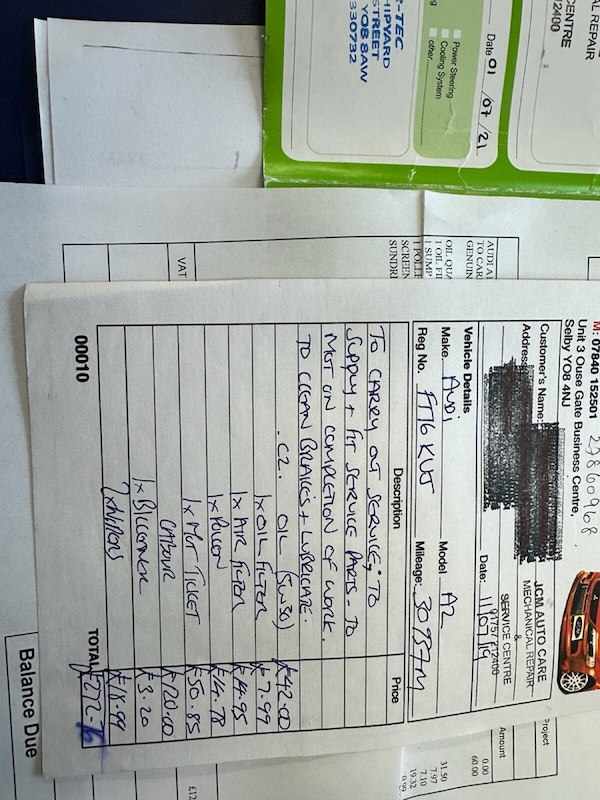 M: 07840 152501
27860968
Unit 3 Ouse Gate Business Centre,
Selby YO8 4NJ
JCM AUTO CARE
&
MECHANICAL REPAIR
SERVICE CENTRE
01757 212400
Customer's Name:
Address:
Date: 11/07/19
Vehicle Details
Make. AUDI Model A2
Reg No. Mileage: 30957M
Description Price
To CARRY OUT SERVICE, TO
SUPPLY + FIT SERVICE PARTS - TO
MOT ON COMPLETION OF WORK.
TO CLEAN BRAKES + LUBRICATE.
C2. OIL (5W30) £42.00
1x OIL FILTER £7.99
1x AIR FILTER £14.95
1x POLLEN £14.78
1x MOT TICKET £50.85
LABOUR £120.00
1x B/CLEANER £3.20
2x WIPERS £18.99
TOTAL £272.76
00010
Date 01 /07 /21
Power Steering
Cooling System
other
R-TEC
HIPYARD
STREET
YO8 8AW
330732
AL REPAIR
CENTRE
12400
AUDI A
TO CAR
GENUIN
OIL QUA
1 OIL FI
1 SUMP
1 POLLE
SCREEN
SUNDRI
VAT
Project
Amount
0.00
60.00
31.50
7.97
7.10
19.32
0.99
£12
Balance Due